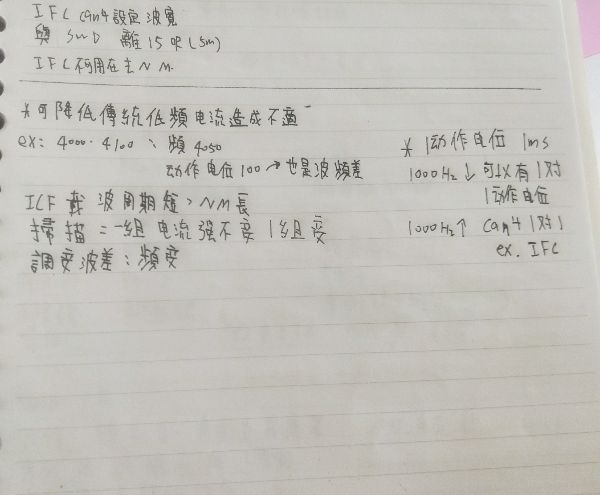 IFC can't 設定波寬
與 SWD 離 15 呎 (5m)
IFC 不可用在去 N M.
* 可降低傳統低頻电流造成不適
ex: 4000. 4100 、 頻 4050
动作电位 100 → 也是波頻差
ICF 載波周期短, NM 長
掃描 = 一組电流强不变 1組变
調变波差: 頻变
* 1动作电位 1ms
1000Hz ↓ 可以有 1对
1动作电位
1000Hz ↑ can't 1对1
ex. IFC